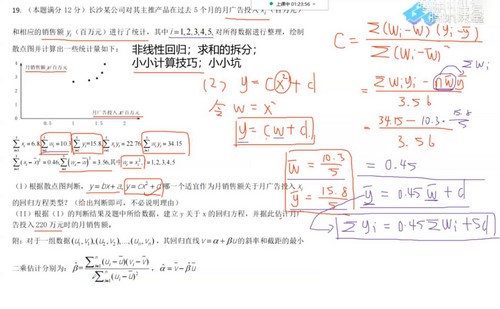 19. (本题满分 12 分) 长沙某公司对其主推产品在过去 5 个月的月广告投入 xᵢ (百万元)
和相应的销售额 yᵢ (百万元) 进行了统计,其中 i=1,2,3,4,5, 对所得数据进行整理,绘制
散点图并计算出一些统计量如下:
非线性回归;求和的拆分;
小小计算技巧;小小坑
月销售额y/百万元
4
3
2
0.5 1 1.5 2
月广告投入x/百万元
∑xᵢ=6.8, ∑wᵢ=10.3, ∑yᵢ=15.8, ∑xᵢyᵢ=22.76, ∑wᵢyᵢ=34.15
∑(xᵢ-x̄)²=0.46, ∑(wᵢ-w̄)²=3.56, 其中 wᵢ=xᵢ², i=1,2,3,4,5
(I) 根据散点图判断, y=bx+a, y=cx²+d 哪一个适宜作为月销售额关于月广告投入 xᵢ
的回归方程类型? (给出判断即可,不必说明理由)
(II) 根据 (I) 的判断结果及题中所给数据,建立 y 关于 x 的回归方程,并据此估计月广
告投入 220 万元时的月销售额.
附:对于一组数据(u₁,v₁),(u₂,v₂),…,(uₙ,vₙ), 其回归直线 v=α+βu 的斜率和截距的最小
二乘估计分别为: β̂=∑(uᵢ-ū)(vᵢ-v̄)/∑(uᵢ-ū)², α̂=v̄-β̂ū
(2) y=cx²+d
令 w=x²
y=cw+d.
w̄=10.3/5
ȳ=15.8/5
C=∑(wᵢ-w̄)(yᵢ-ȳ)/∑(wᵢ-w̄)²
=∑wᵢyᵢ-nw̄ȳ/3.56
=34.15-10.3·15.8/5/3.56
=0.45
ȳ=0.45w̄+d
∑yᵢ=0.45∑wᵢ+5d